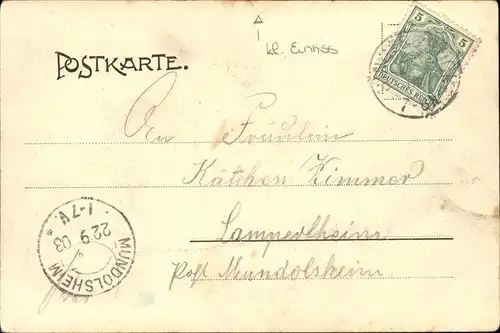 kl. Einriss
POSTKARTE.
5 5
DEUTSCHES REICH
An Fräulein
Kätchen Zimmer
Lampertheim
Post Mundolsheim
MUNDOLSHEIM
22.9.03
* 1-7V. *